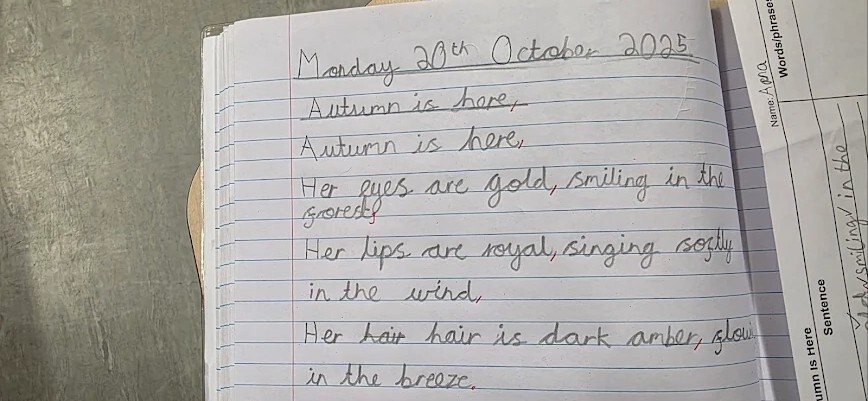 Monday 20th October 2025
Autumn is here,
Autumn is here,
Her eyes are gold, smiling in the
forest,
Her lips are royal, singing softly
in the wind,
Her hair hair is dark amber,
in the breeze.
Name: Anna
Words/phrases
umn is Here
Sentence
smiling in the